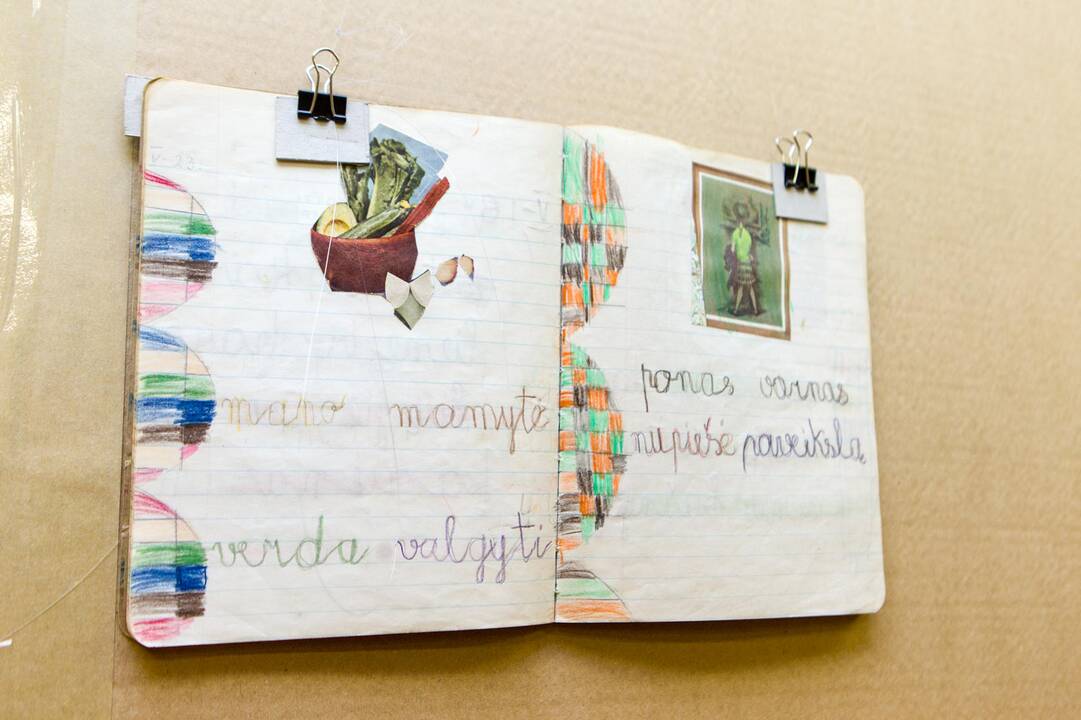 V-23.
mano mamytė
verda valgyti
ponas varnas
nupiešė paveikslą